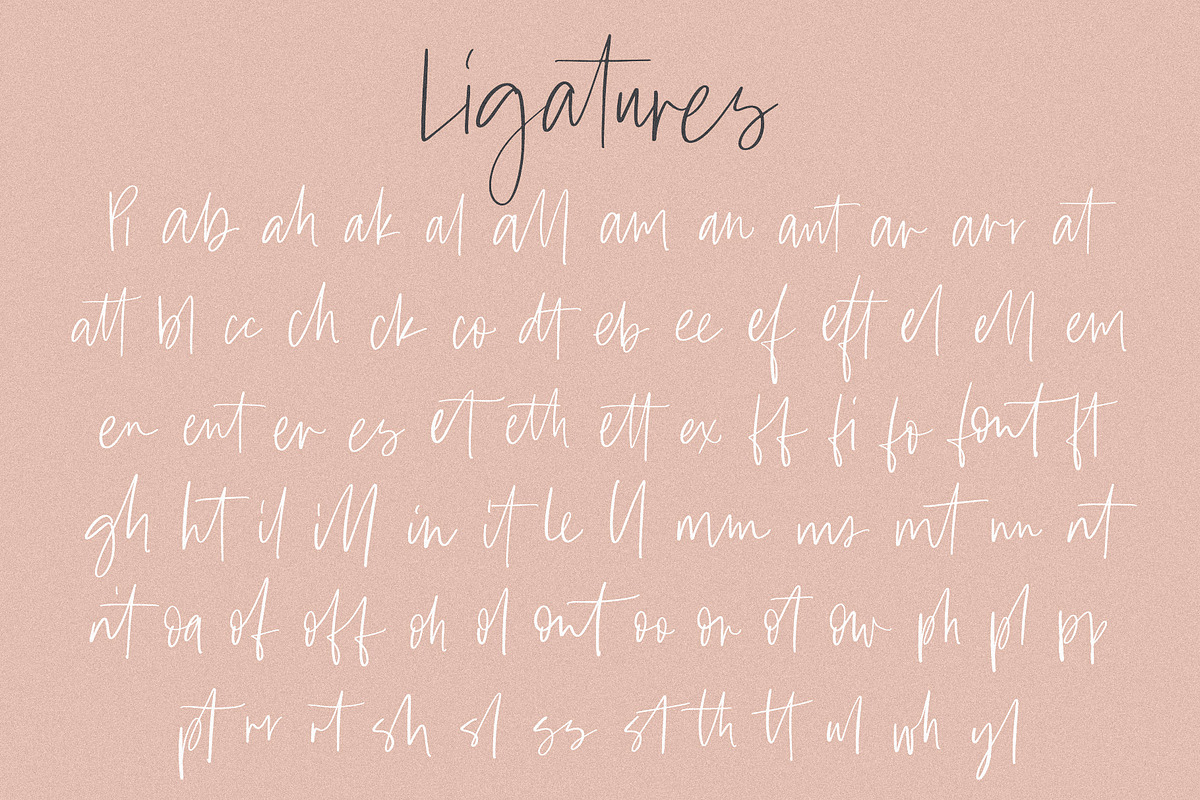 Ligatures
Pi ab ah ak al all am an ant ar arr at
att bl cc ch ck co dt eb ee ef eft el ell em
en ent er es et eth ett ex ff fi fo font ft
gh ht il ill in it le ll mm ms mt nn nt
n't oa of off oh ol ont oo or ot ow ph pl pp
pt rr rt sh sl ss st th tt ul wh yl